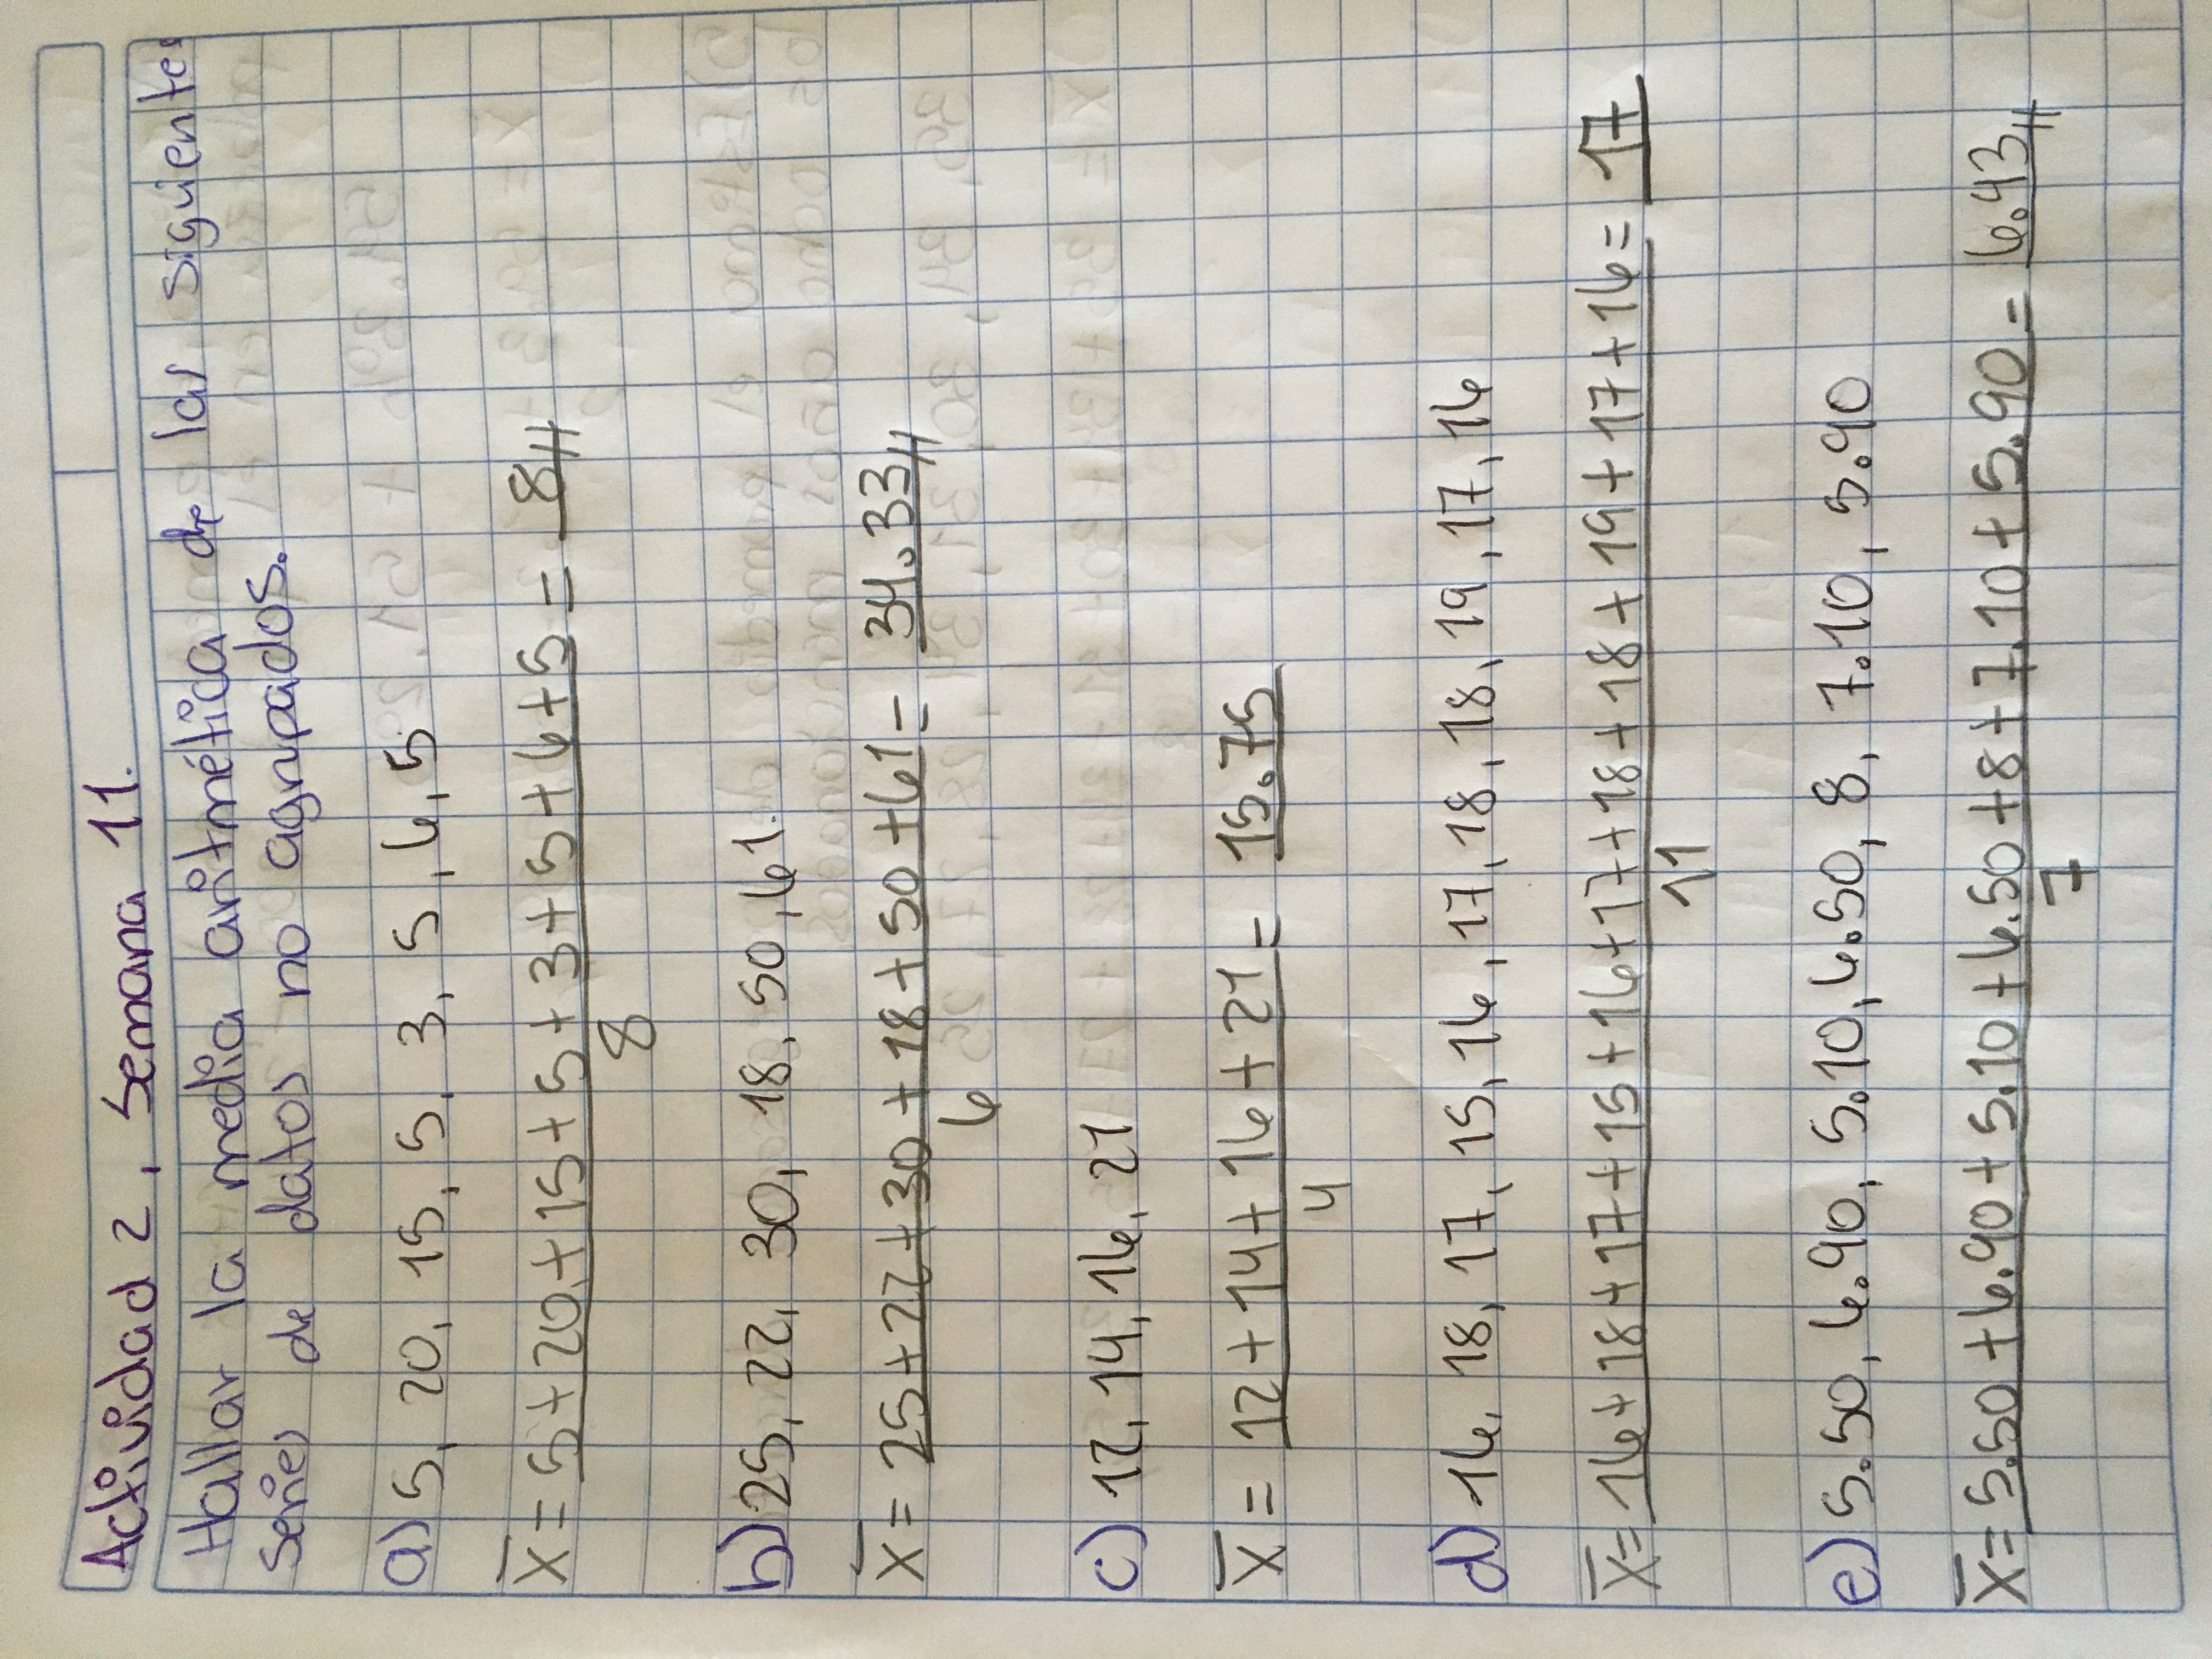 Actividad 2, Semana 11.
Hallar la media aritmética de las siguientes
series de datos no agrupados.
a) 5, 20, 15, 5, 3, 5, 6, 5
X̄ = 5+20+15+5+3+5+5+6+5 = 8
8
b) 25, 22, 30, 18, 50, 61.
X̄ = 25+22+30+18+50+61 = 34.33
6
c) 12, 14, 16, 21
X̄ = 12+14+16+21 = 15.75
4
d) 16, 18, 17, 15, 16, 17, 18, 18, 19, 17, 16
X̄ = 16+18+17+15+16+17+18+18+19+17+16 = 17
11
e) 5.50, 6.90, 5.10, 6.50, 8, 7.10, 5.90
X̄ = 5.50+6.90+5.10+6.50+8+7.10+5.90 = 6.43
7